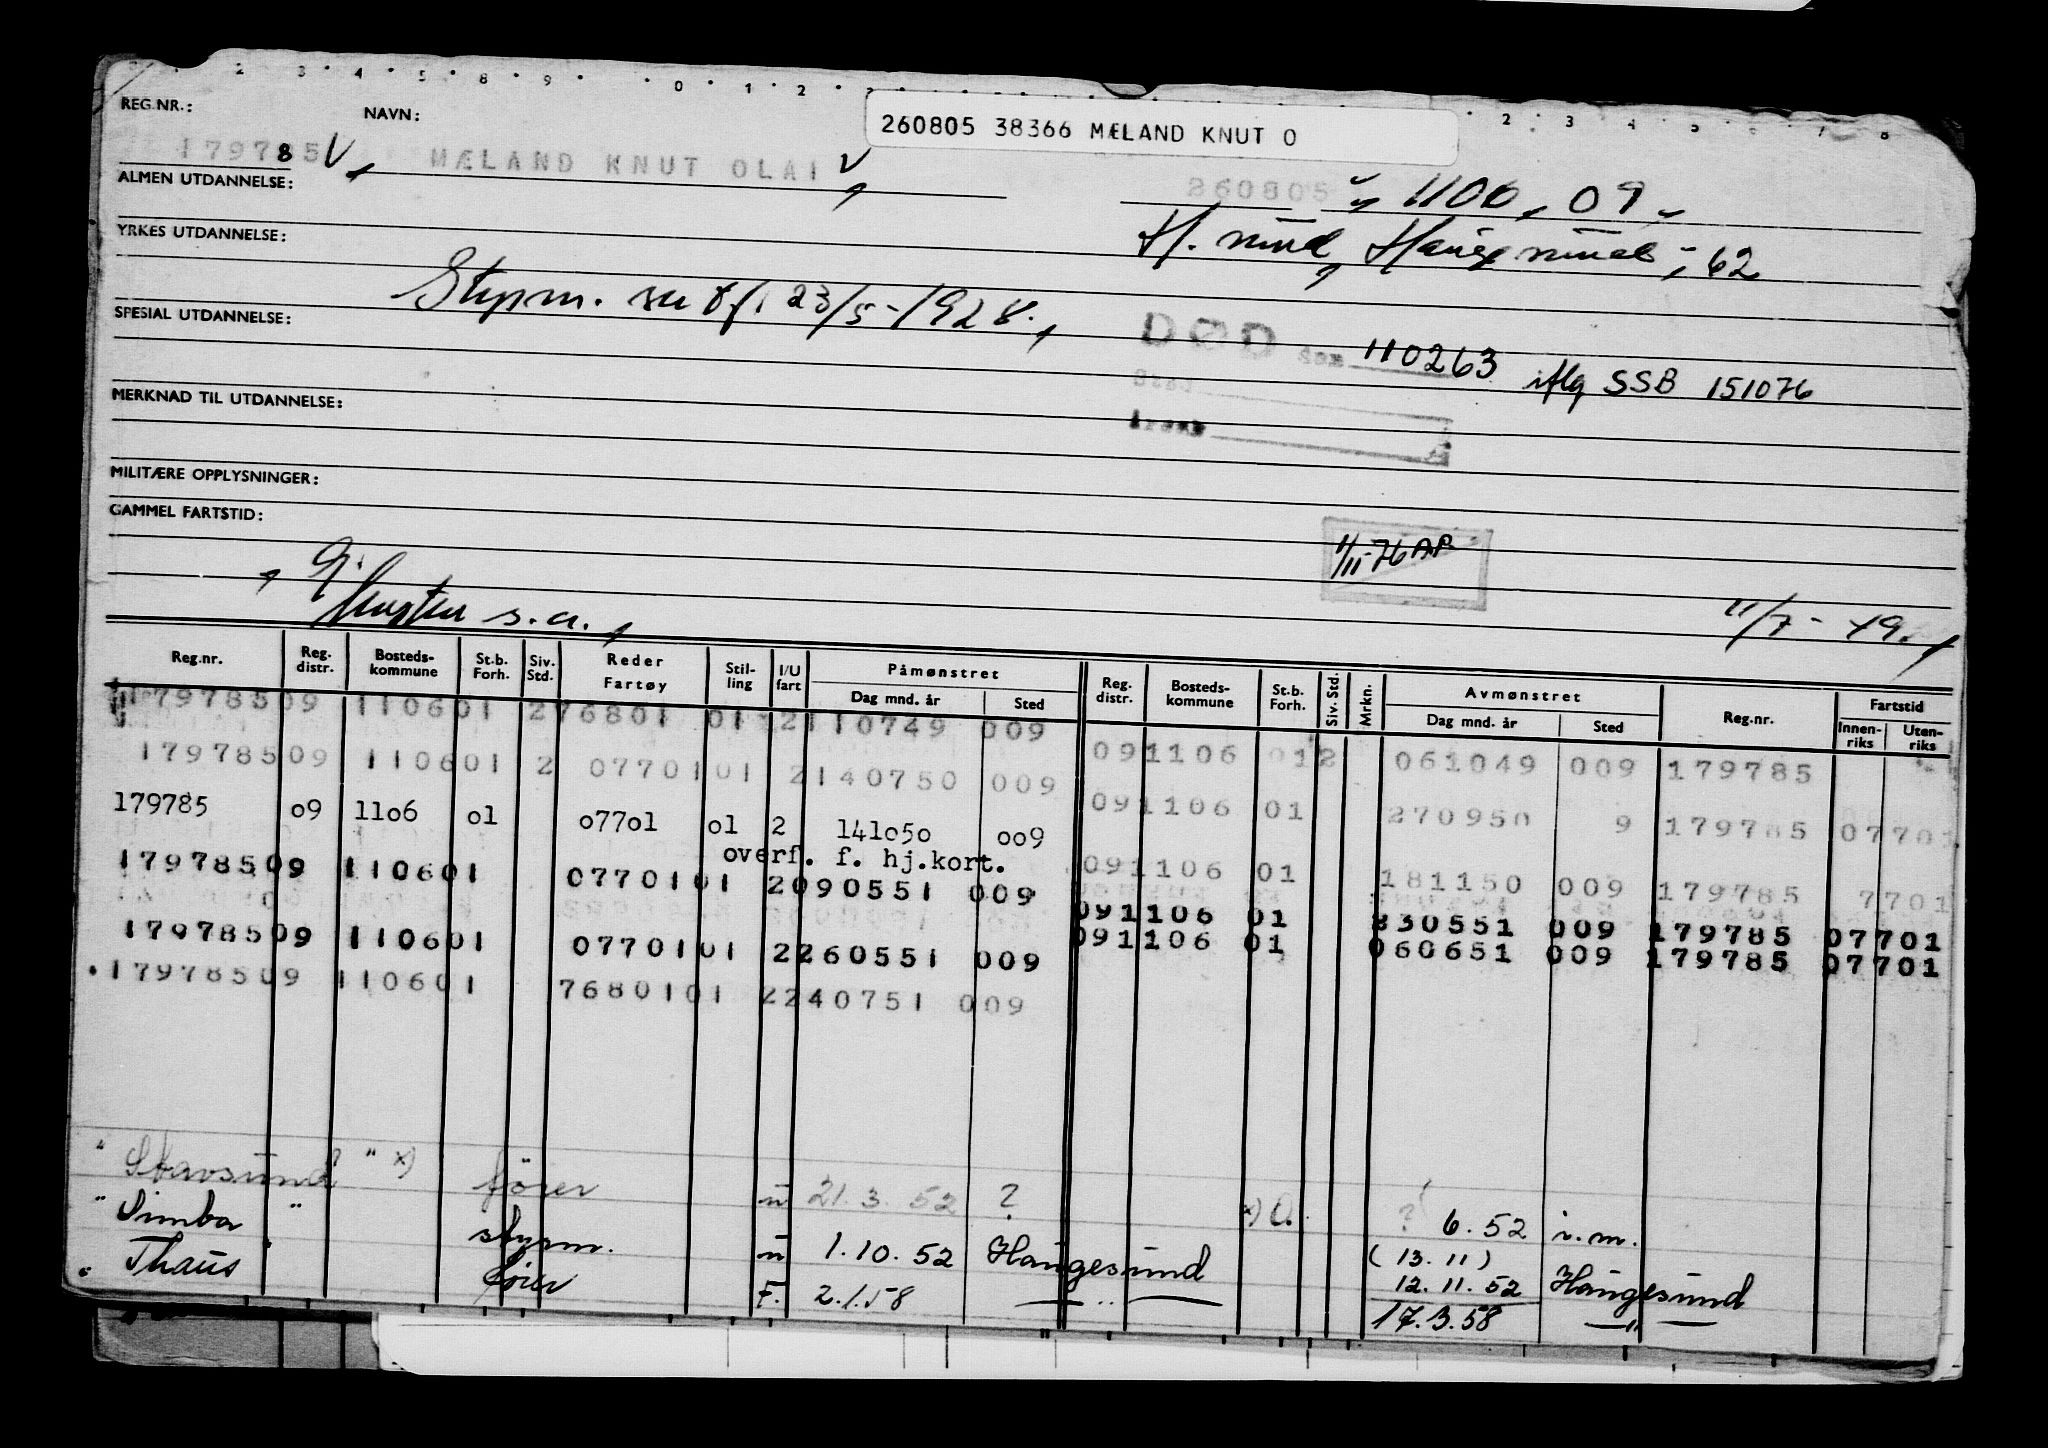 2 3 4 5 8 9 0 1 2 2 3 4 5 6 7 8
REG.NR.: NAVN:
260805 38366 MÆLAND KNUT O
179785 V MÆLAND KNUT OLAI V
8
ALMEN UTDANNELSE:
260805 1106, 09
YRKES UTDANNELSE:
H. sund, Haugesund, 62
Styrm. 23/5-1928.
SPESIAL UTDANNELSE:
DØD den 110263 iflg SSB 151076
Sted
Årsak
MERKNAD TIL UTDANNELSE:
MILITÆRE OPPLYSNINGER:
GAMMEL FARTSTID:
11/11-76 AP
s.a. 11/7-49.
Reg.nr. Reg. distr. Bosteds- kommune St.b. Forh. Siv. Std. Reder Fartøy Stil- ling I/U fart Påmønstret Dag mnd. år Sted Reg. distr. Bosteds- kommune St.b. Forh. Siv. Std. Mrkn. Avmønstret Dag mnd. år Sted Reg.nr. Fartstid Innen- riks Uten- riks
179785 09 1106 01 2 76801 01 2 110749 009 09 1106 01 2 061049 009 179785
179785 09 1106 01 2 07701 01 2 140750 009 09 1106 01 270950 9 179785 07701
179785 o9 11o6 o1 o77o1 o1 2 141o5o oo9
overf. f. hj.kort.
09 1106 01 181150 009 179785 7701
179785 09 1106 01 07701 01 2 090551 009 09 1106 01 230551 009 179785 07701
179785 09 1106 01 07701 01 2 260551 009 09 1106 01 060651 009 179785 07701
179785 09 1106 01 76801 01 2 240751 009
" Stavsund " x) fører u 21.3.52 ? x) O. ? 6.52 i.m.
" Simba " styrm. u 1.10.52 Haugesund (13.11) 12.11.52 Haugesund
" Thaus fører F. 2.1.58 — " — 17.3.58 — " —